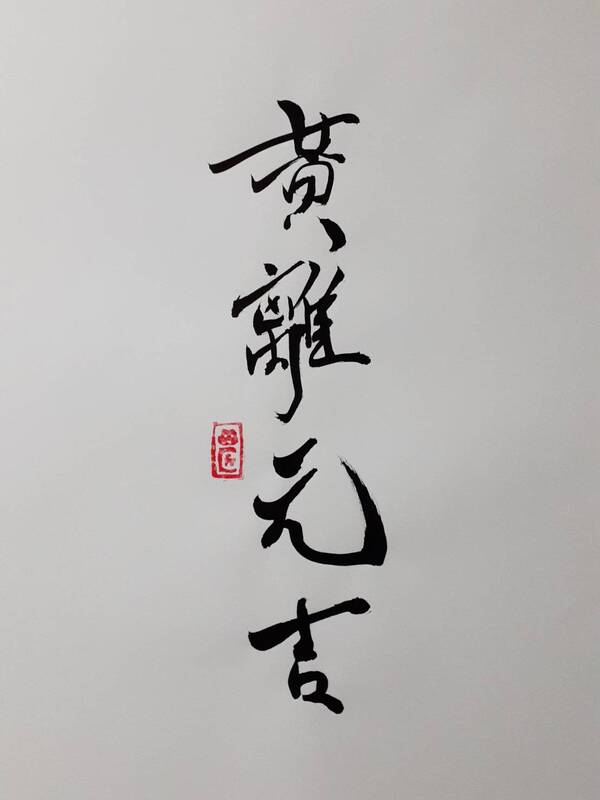 黄離元吉